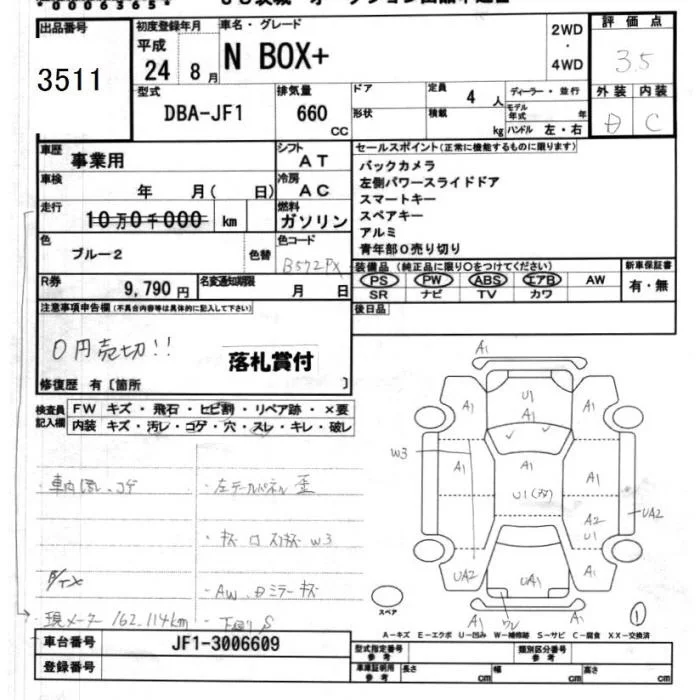 *00063654*
出品番号
3511
初度登録年月
平成
24 年 8 月
車名・グレード
N BOX+
2WD
・
4WD
評価点
3.5
型式
DBA-JF1
排気量
660
CC
ドア
形状
定員 4 人
積載 kg
ディーラー・並行
モデル年式 年
ハンドル 左・右
外装 内装
C
車歴
事業用
シフト
AT
車検
年 月( 日)
冷房
AC
走行
10万0千000 km
燃料
ガソリン
色
ブルー2
色替
色コード
B572PX
R券
9,790 円
名変通知期限
月 日
セールスポイント(正常に機能するものに限ります)
バックカメラ
左側パワースライドドア
スマートキー
スペアキー
アルミ
青年部0売り切り
装備品(純正品に限り○をつけてください)
PS PW ABS エアB AW
SR ナビ TV カワ
新車保証書
有・無
後日品
注意事項申告欄(不具合内容等は具体的に記入して下さい)
0円売切!!
落札賞付
修復歴 有〔箇所 〕
検査員
記入欄
FW キズ・飛石・ヒビ割・リペア跡・×要
内装 キズ・汚レ・コゲ・穴・スレ・キレ・破レ
・車内汚レ、コゲ
・左テールパネル歪
・現メーター 162,114km
・下廻りS
A1
A1
U1
A1
A1
W3
A1
A1
A1
U1
A2
U1
UA2
UA2
UA1
A1
A1
A1
スペア
①
A-キズ E-エクボ U-凹み W-補修跡 S-サビ C-腐食 XX-交換済
車台番号 JF1-3006609
登録番号
型式指定番号 参考
類別区分番号 参考
車庫証明用 参考 長さ cm 幅 cm 高さ cm